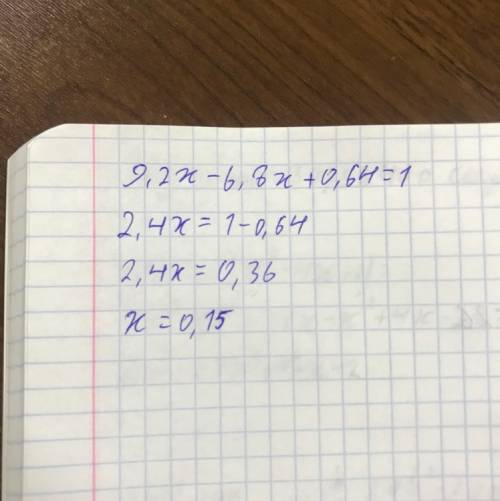 9,2x-6,8x+0,64=1
2,4x=1-0,64
2,4x=0,36
x=0,15